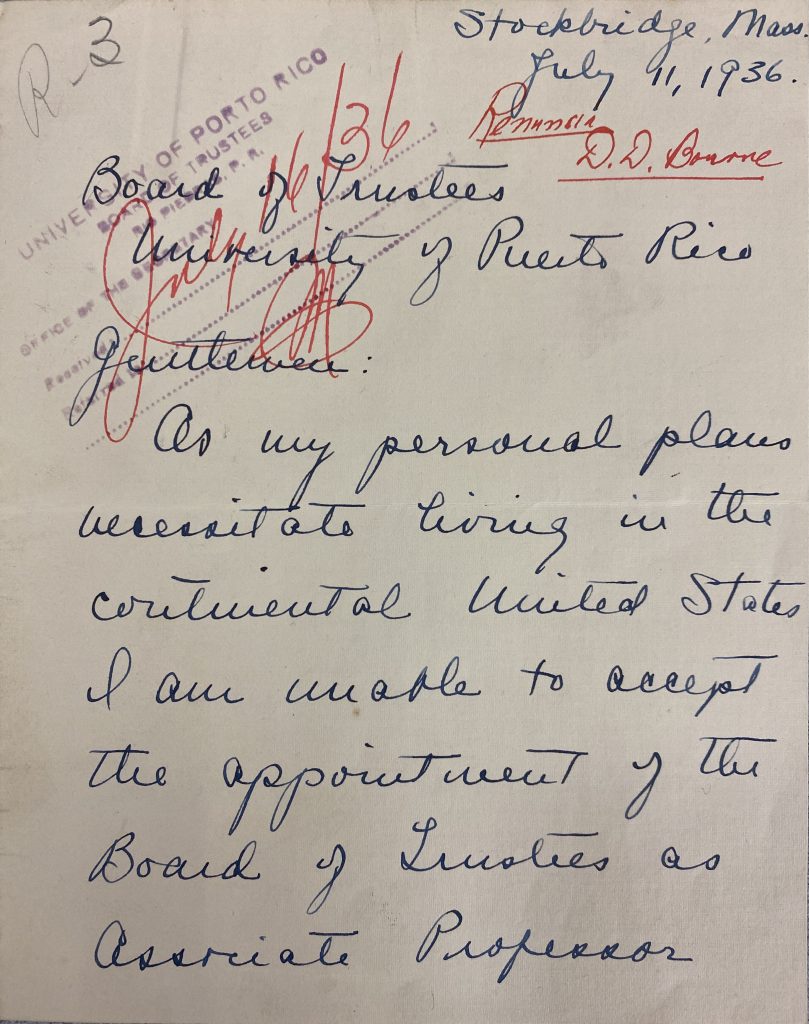 R-3
Stockbridge, Mass.
July 11, 1936.
Renuncia
D. D. Bourne
UNIVERSITY OF PORTO RICO
BOARD OF TRUSTEES
RIO PIEDRAS, P. R.
OFFICE OF THE SECRETARY
Received
July 16/36
Board of Trustees
University of Puerto Rico
Gentlemen:
As my personal plans
necessitate living in the
continental United States
I am unable to accept
the appointment of the
Board of Trustees as
Associate Professor